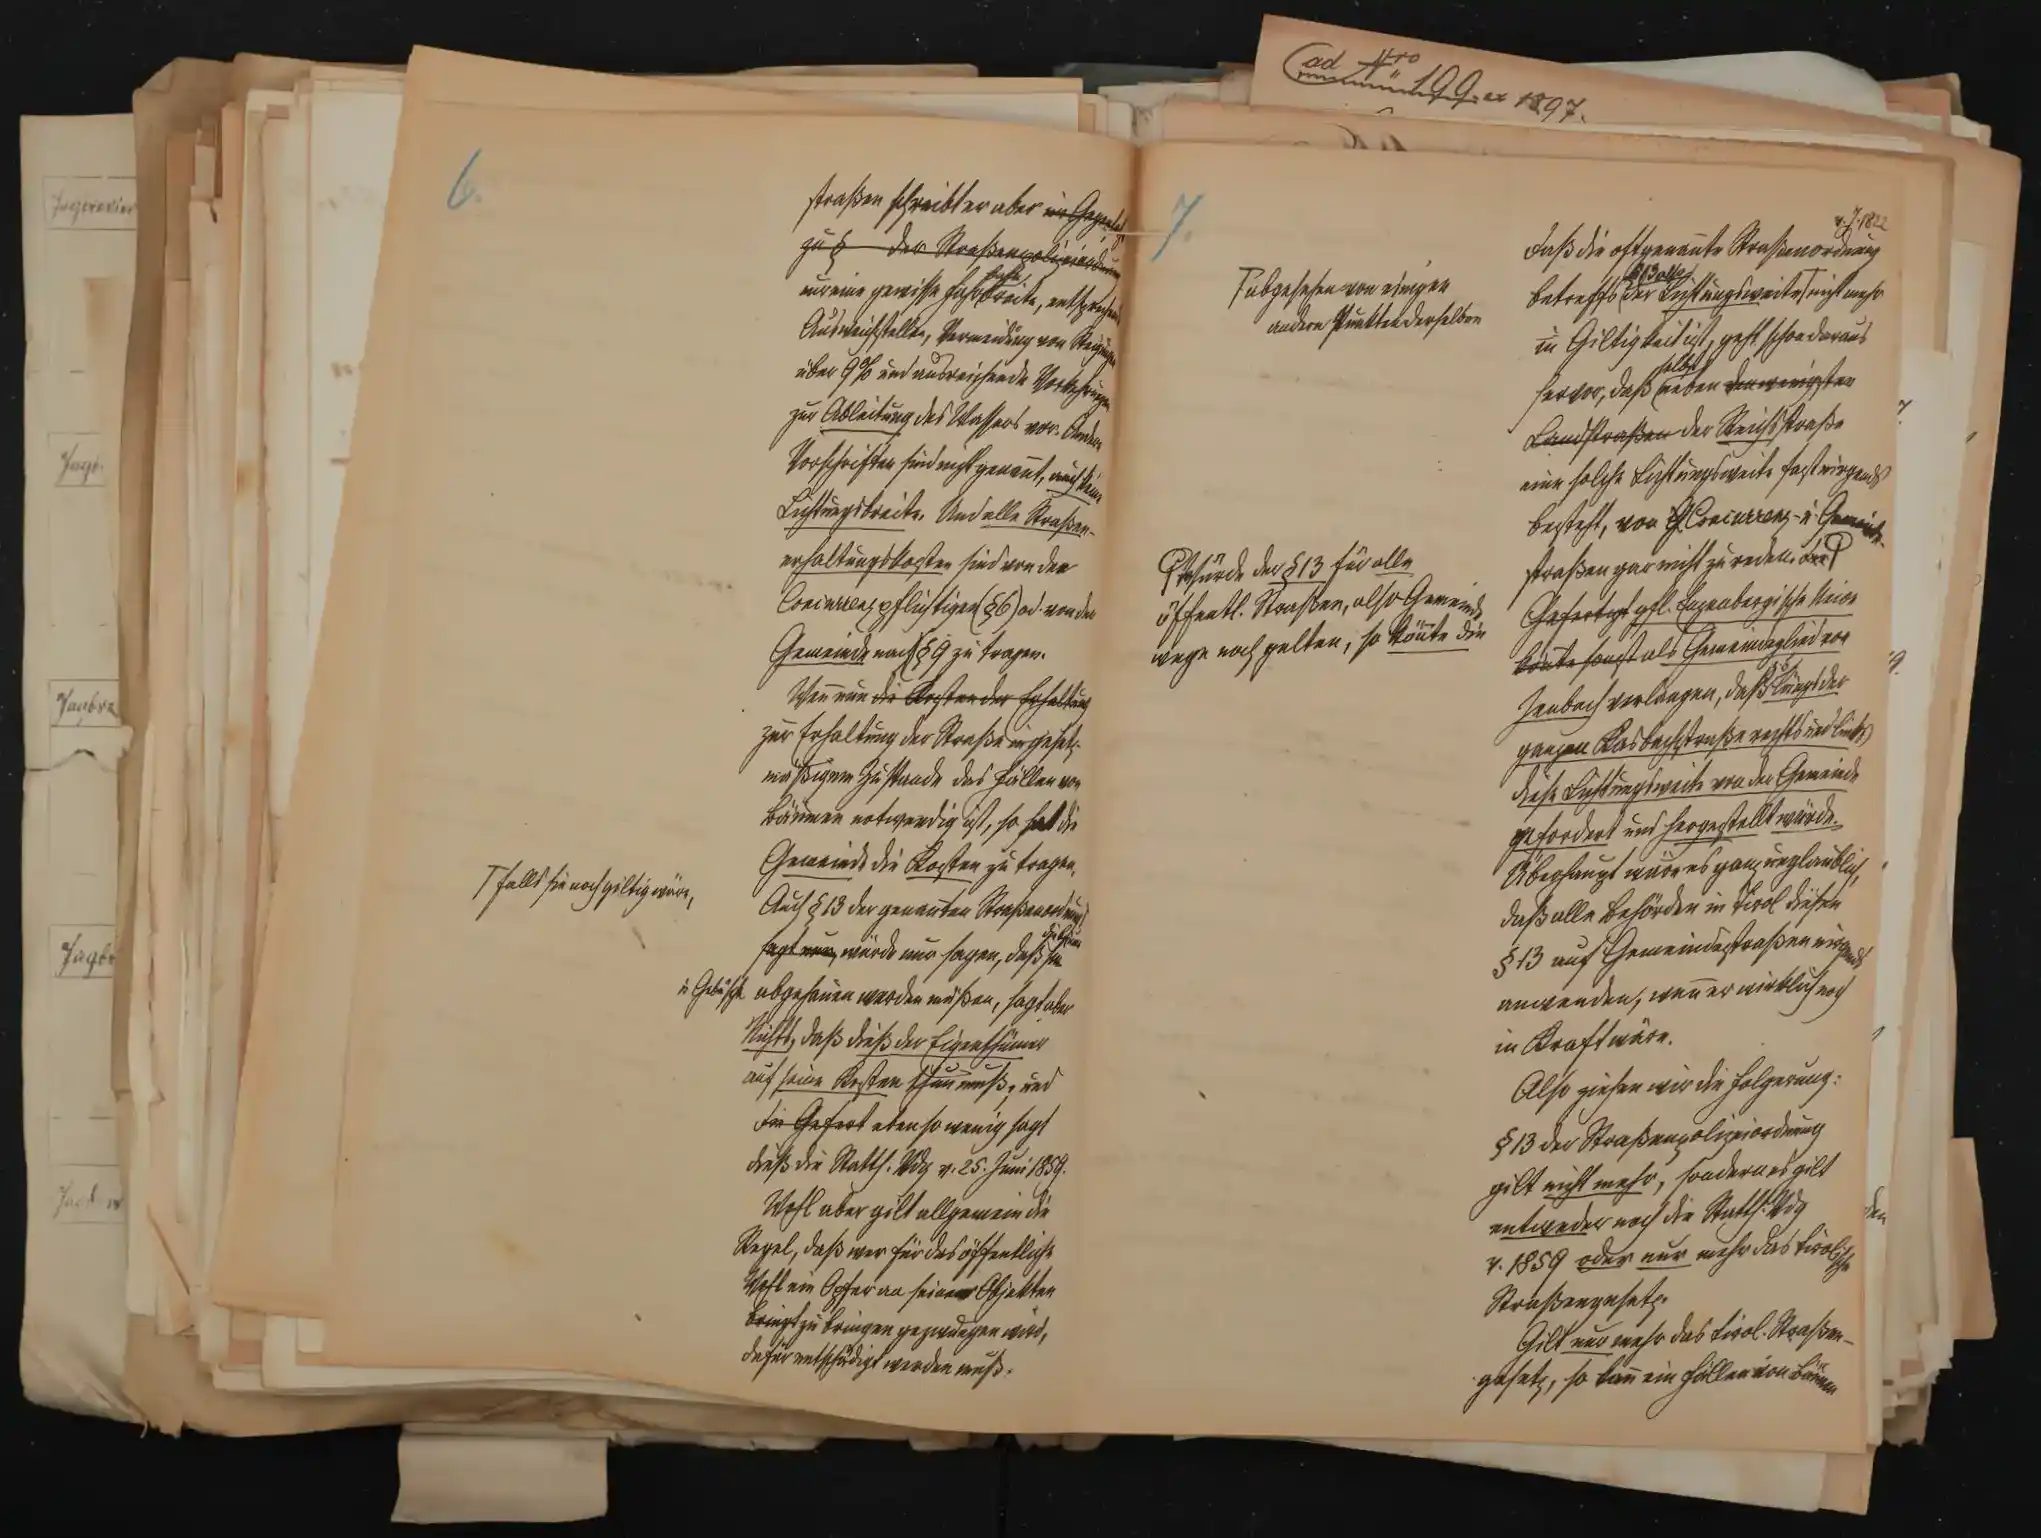 ad Nro 199 ex 1897.
6.
straßen schreibt er aber im Gegensatz
zu § der Straßenpolizeiordnung
nur eine gewisse Fahrbreite, entsprechende
Ausweichstellen, Vermeidung von Steigungen
über 9% und ausreichende Vorkehrungen
zur Ableitung des Wassers vor. Andere
Vorschriften sind nicht genannt, auch keine
Lichtungsbreite. Und alle Straßen-
erhaltungskosten sind von den
Concurrenzpflichtigen (§6) od. von den
Gemeinde nach §9 zu tragen.
Wenn nun die Kosten der Erhaltung
zur Erhaltung der Straße in gesetz-
mäßigem Zustande das Fällen von
Bäumen notwendig ist, so hat die
Gemeinde die Kosten zu tragen.
Auch §13 der genannten Straßenordnung
⊤ falls sie noch giltig wäre,
sagt nur, würde nur sagen, daß die Bäume
u Gebüsche abgehauen werden müßen, sagt aber
Nichts, daß dieß der Eigenthümer
auf seine Kosten thun muß, und
die Gefert ebenso wenig sagt
dieß die Statth. Vdg v. 25. Juni 1859.
Wohl aber gilt allgemein die
Regel, daß wer für das öffentliche
Wohl ein Opfer an seinen Objekten
bringt zu bringen gezwungen wird,
dafür entschädigt werden muß.
7.
v. J. 1822
Daß die oftgenannte Straßenordnung
betreffs §13 also der Lichtungsweite ⊤ nicht mehr
⊤ abgesehen von einigen
andern Punkten derselben
in Giltigkeit ist, geht schon daraus
hervor, daß selbst neben den wenigsten
Landstraßen der Reichsstraße
eine solche Lichtungsweite fast nirgends
besteht, von Concurrenz- u. Gemeinde-
straßen gar nicht zu reden.
Würde der §13 für alle
öffentl. Straßen, also Gemeinde
wege noch gelten, so könnte die
Gefertigt gfl. Enzenbergische
könnte sonst als Gemeindeglied von
Jenbach verlangen, daß längs der
ganzen Kasbachstraße rechts und links
diese Lichtungsweite von der Gemeinde
gefordert und hergestellt würde.
Überhaupt wäre es ganz unglaublich,
daß alle Behörden in Tirol diesen
§13 auf Gemeindestraßen nirgends
anwenden, wenn er wirklich noch
in Kraft wäre.
Also ziehen wir die Folgerung:
§13 der Straßenpolizeiordnung
gilt nicht mehr, sondern es gilt
entweder noch die Statth. Vdg
v. 1859 oder nur mehr das tirolische
Straßengesetz.
Gilt nur mehr das tirol. Straßen-
gesetz, so kann ein Fällen von Bäumen